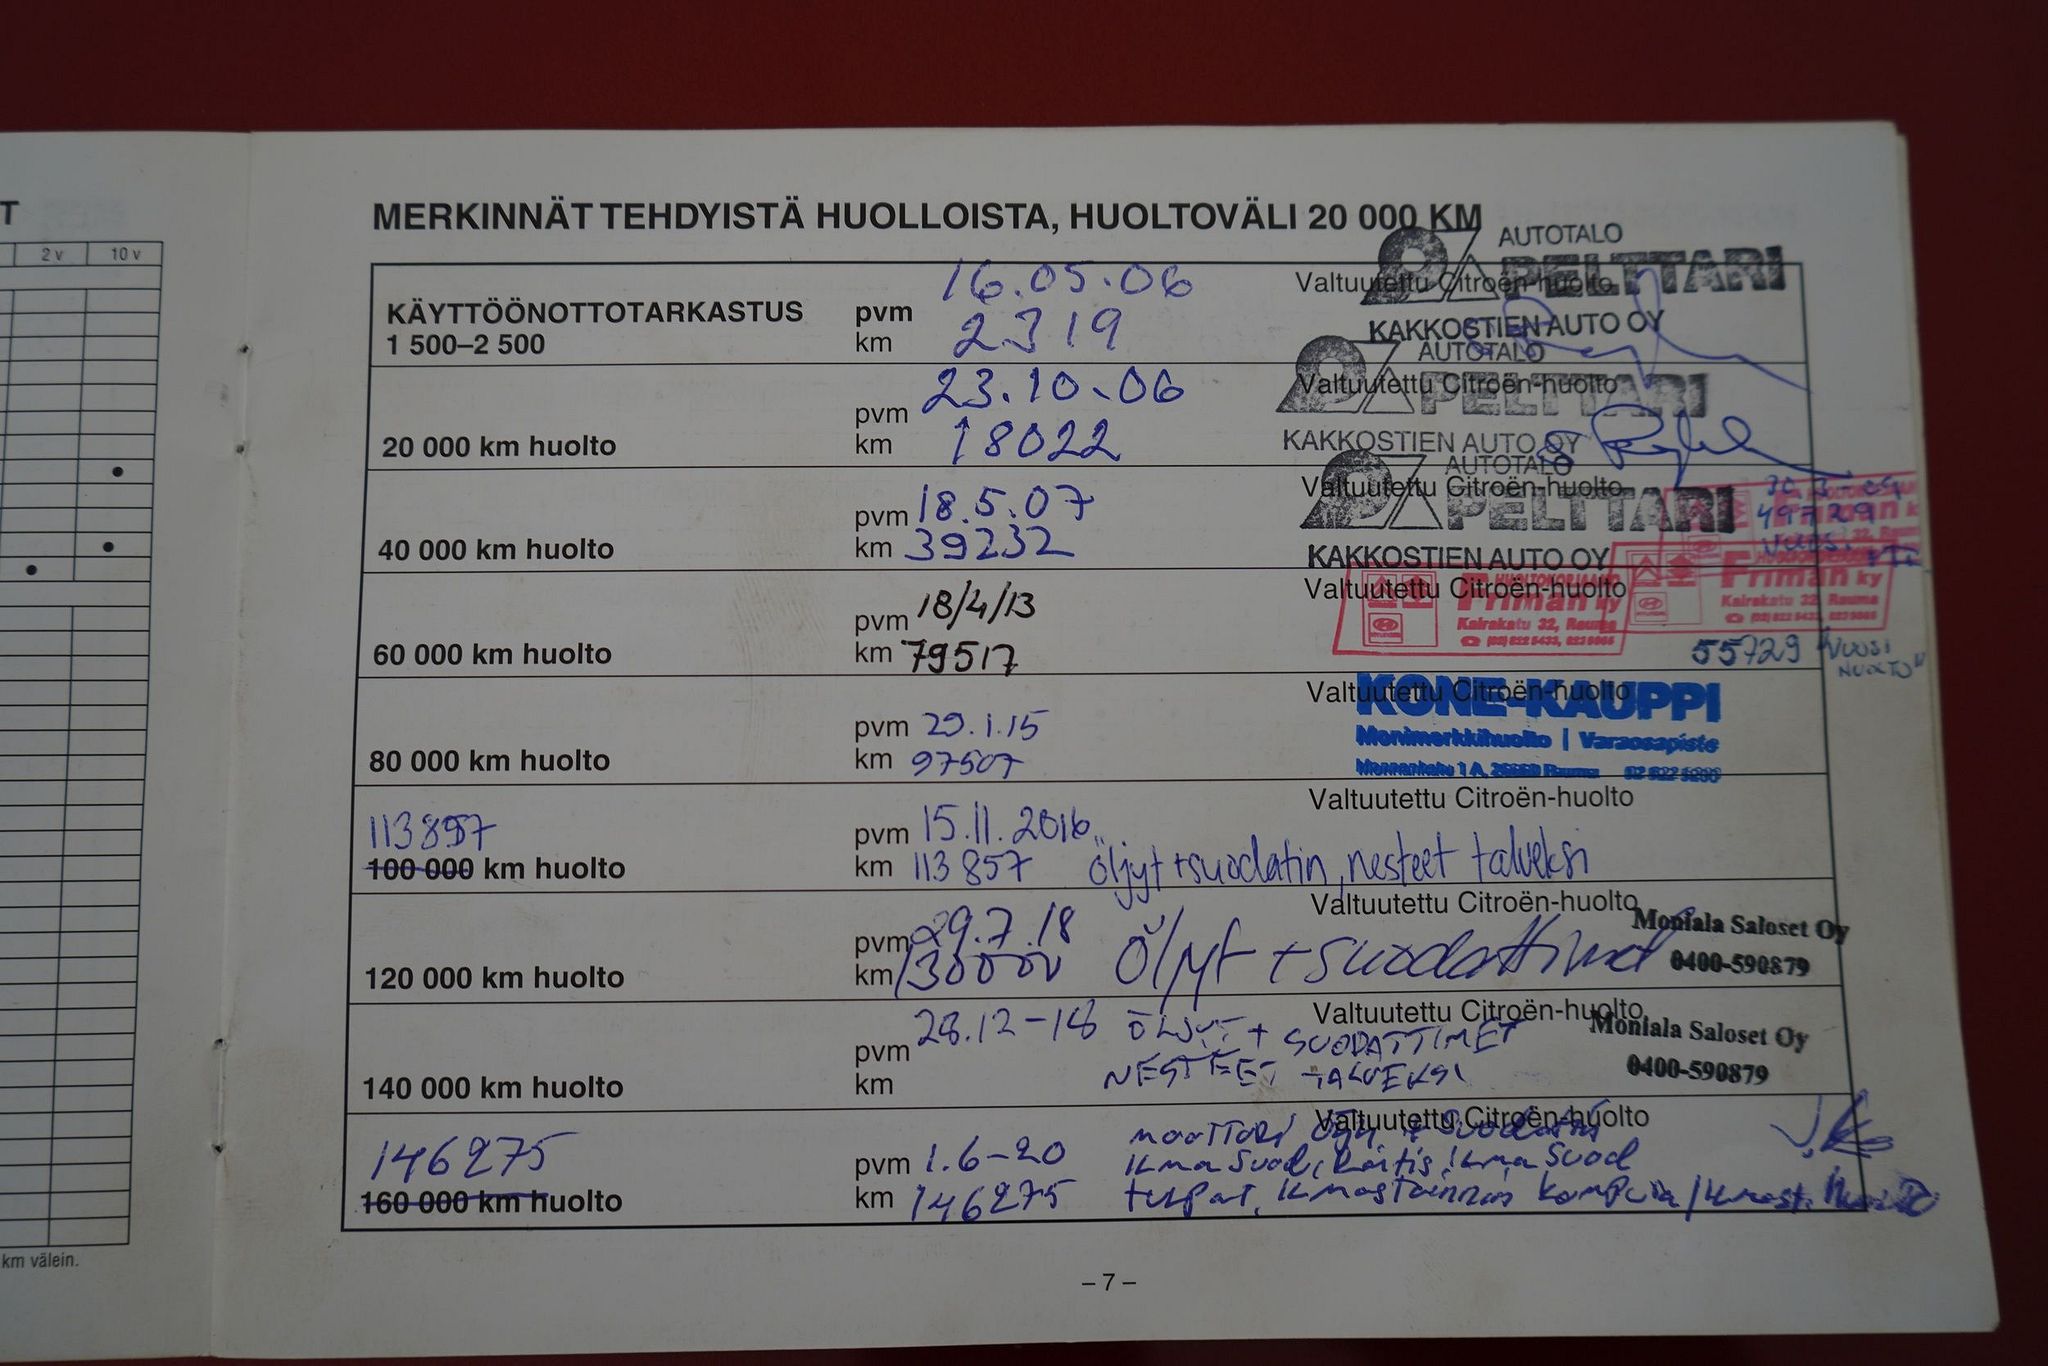 T
2 v 10 v
km välein.
MERKINNÄT TEHDYISTÄ HUOLLOISTA, HUOLTOVÄLI 20 000 KM
AUTOTALO
PELTTARI
KAKKOSTIEN AUTO OY
KÄYTTÖÖNOTTOTARKASTUS
1 500–2 500
pvm 16.05.06
km 2319
Valtuutettu Citroën-huolto
AUTOTALO
PELTTARI
KAKKOSTIEN AUTO OY
20 000 km huolto
pvm 23.10.06
km 18022
Valtuutettu Citroën-huolto
AUTOTALO
PELTTARI
KAKKOSTIEN AUTO OY
40 000 km huolto
pvm 18.5.07
km 39232
Valtuutettu Citroën-huolto
49729
Friman ky
Kairakatu 32, Rauma
HYUNDAI
Friman ky
Kairakatu 32, Rauma
HYUNDAI
60 000 km huolto
pvm 18/4/13
km 79517
Valtuutettu Citroën-huolto
55729 "VUOSI
HUOLTO"
80 000 km huolto
pvm 29.1.15
km 97507
Valtuutettu Citroën-huolto
KONE-KAUPPI
Monimerkkihuolto | Varaosapiste
113857
100 000 km huolto
pvm 15.11.2016
km 113857 öljyt + suodatin, nesteet talveksi
Valtuutettu Citroën-huolto
120 000 km huolto
pvm 29.7.18
km 130000 Öljyt + suodattimet
Valtuutettu Citroën-huolto
Moniala Saloset Oy
0400-590879
140 000 km huolto
pvm 28.12-18 ÖLJYT + SUODATTIMET
km NESTEET TALVEKSI
Valtuutettu Citroën-huolto
Moniala Saloset Oy
0400-590879
146275
160 000 km huolto
pvm 1.6-20
km 146275
Valtuutettu Citroën-huolto
moottori öljy + suodatin
ilma suod, ilma suod
tulpat, ilmastoinnin
– 7 –